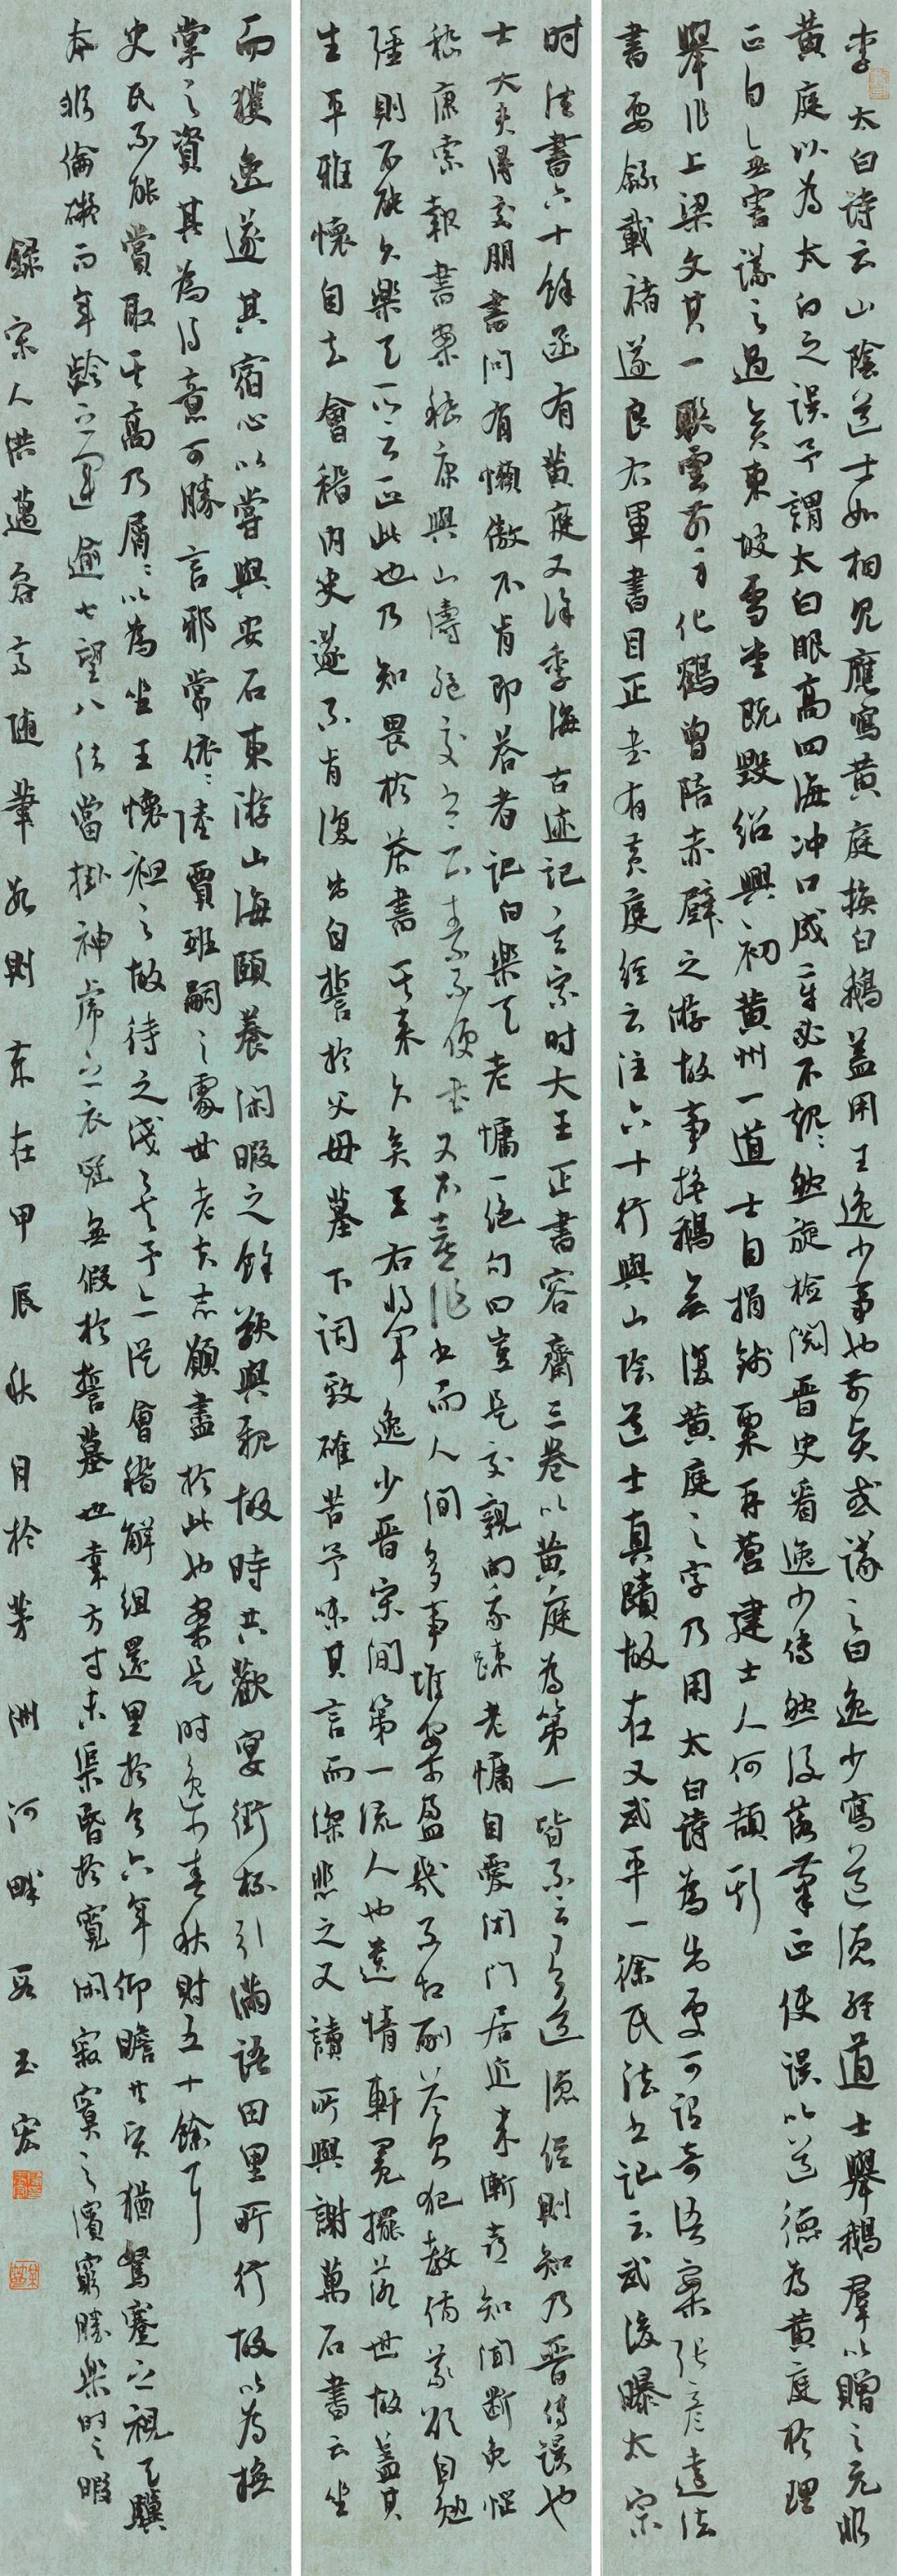 李太白诗云山陰道士如相見應寫黄庭換白鵝盖用王逸少事也前贤或議之曰逸少寫道德經道士舉鵝羣以贈之元非
黄庭以为太白之误予謂太白眼高四海冲口成章必不規規然旋检阅晋史看逸少傳然後落筆正使误以道德为黄庭於理
正自無害議之過矣東坡雪堂既毀绍興初黄州一道士自捐錢粟再营建士人何頡斯
舉作上梁文其一聯云前身化鶴曾陪赤壁之游故事换鵝無復黄庭之字乃用太白诗为出處可謂奇語案張彦遠法
書要録載褚遂良右軍書目正书有黄庭经云注六十行與山陰道士真蹟故在又武平一徐氏法书记云武后曝太宗
时法書六十餘函有黄庭又徐季海古迹記云宗时大王正書容齋三卷以黄庭为第一皆不云有道德经則知乃晋傳误也
士大夫得交朋書问有懒傲不肯即答者记白樂天老慵一绝句曰豈是交親向我疎老慵自爱闭门居近来漸喜知闻断免惱
嵇康索報書案嵇康與山濤绝交书云素不便书又不喜作书而人间多事堆案盈几不相酬答则犯教傷義欲自勉
强則不能久樂天所云正此也乃知畏於答書其来久矣王右将军逸少晋宋间第一流人也遗情軒冕擺落世故盖其
生平雅懷自去會稽内史遂不肯復出自誓於父母墓下词致確苦予味其言而深悲之又讀所與謝萬石書云坐
而獲逸遂其宿心比嘗與安石東游山海颐養闲暇之餘欲與親故時共歡宴銜杯引滿語田里所行故以为撫
掌之資其为得意可勝言邪常依依陸賈班嗣之處世老夫志願盡於此也案是时逸少春秋财五十餘耳
史氏不能賞取其高乃屑屑以为坐王懷祖之故待之淺矣予亦從會稽解组還里於今六年仰瞻昔贤猶駑蹇之视天驥
本非倫儗而年龄之运逾七望八法當掛神虎之衣冠無假於誓墓也幸方寸未渠昏於寬闲寂寞之濱窮勝樂时之暇
録宋人洪邁容斋随筆数則岁在甲辰秋月於茅洲河畔 段玉宏